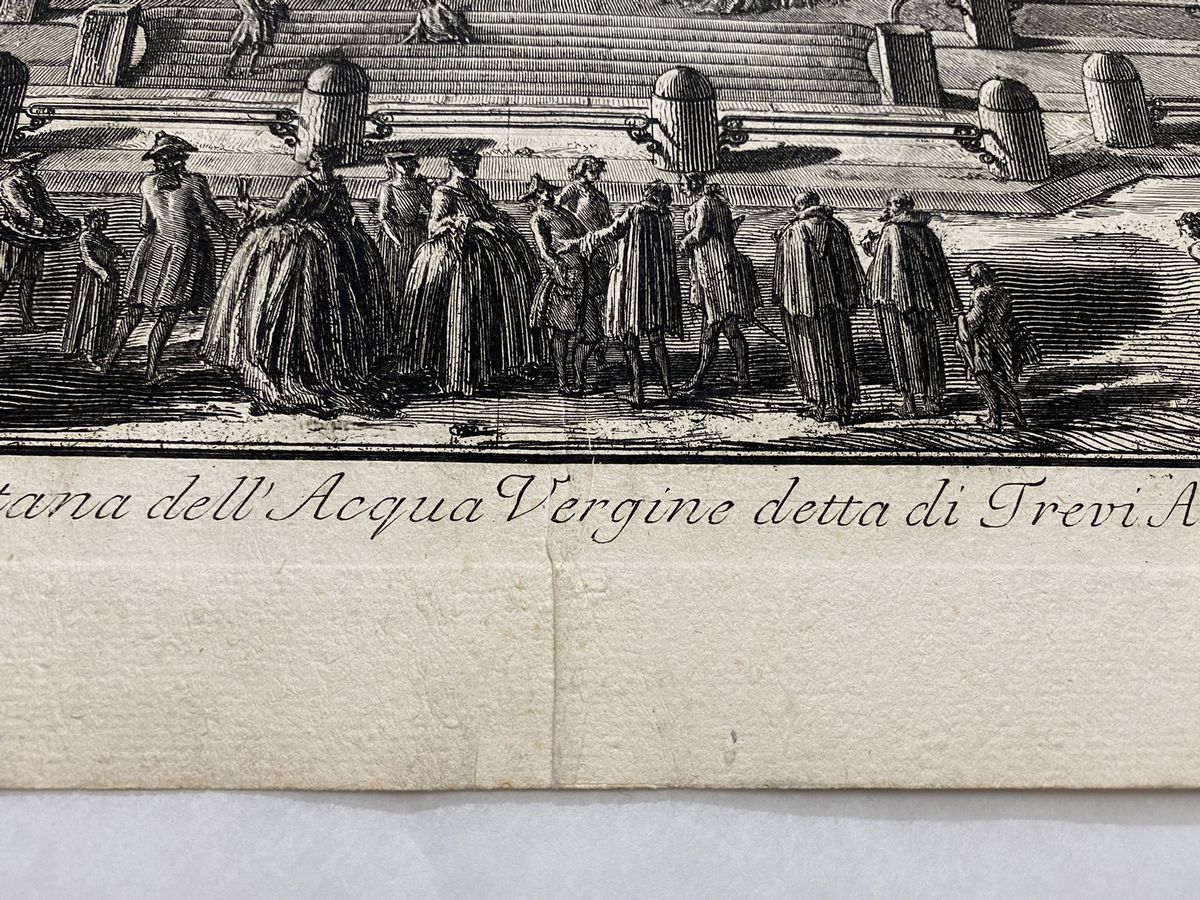 tana dell' Acqua Vergine detta di Trevi A